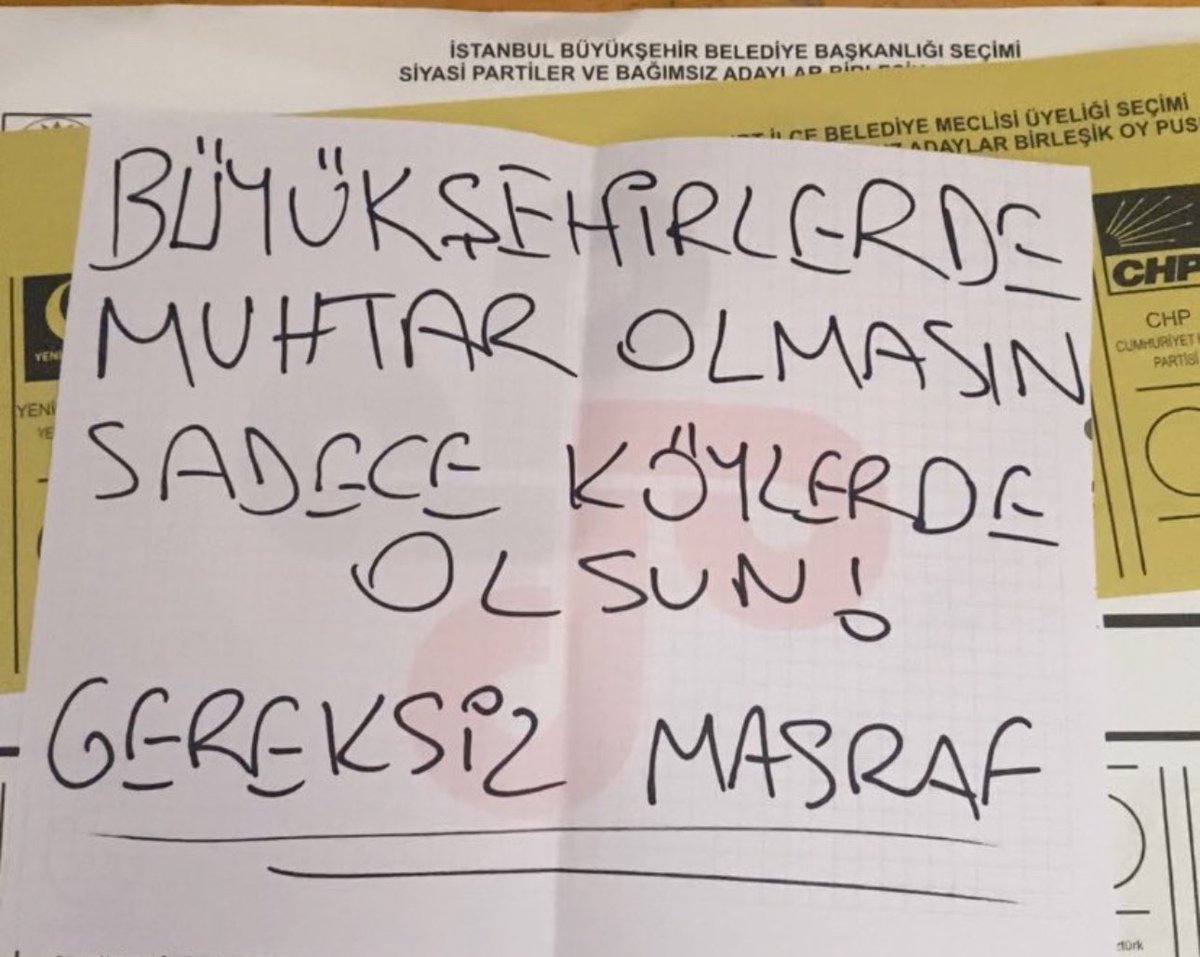 İSTANBUL BÜYÜKŞEHİR BELEDİYE BAŞKANLIĞI SEÇİMİ
SİYASİ PARTİLER VE BAĞIMSIZ ADAYLAR
İLÇE BELEDİYE MECLİSİ ÜYELİĞİ SEÇİMİ
ADAYLAR BİRLEŞİK OY PUS
BÜYÜKŞEHİRLERDE
MUHTAR OLMASIN
SADECE KÖYLERDE
OLSUN!
GEREKSİZ MASRAF
CHP
CHP
CUMHURİYET
PARTİSİ
YENİ
YENİ
YE
türk